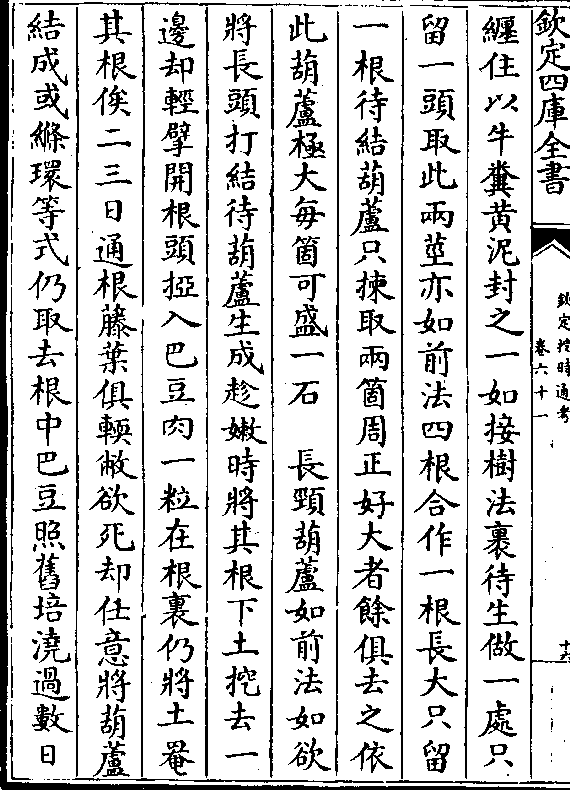 欽定四庫全書
欽定授時通考
卷六十一
纏住以牛糞黄泥封之一如接樹法裹待生做一處只
留一頭取此兩莖亦如前法四根合作一根長大只留
一根待結葫蘆只揀取兩箇周正好大者餘俱去之依
此葫蘆極大每箇可盛一石　長頸葫蘆如前法如欲
將長頭打結待葫蘆生成趁嫩時將其根下土挖去一
邊却輕擘開根頭揑入巴豆肉一粒在根裏仍將土罨
其根俟二三日通根藤葉俱輭敝欲死却任意將葫蘆
結成或縧環等式仍取去根中巴豆照舊培澆過數日